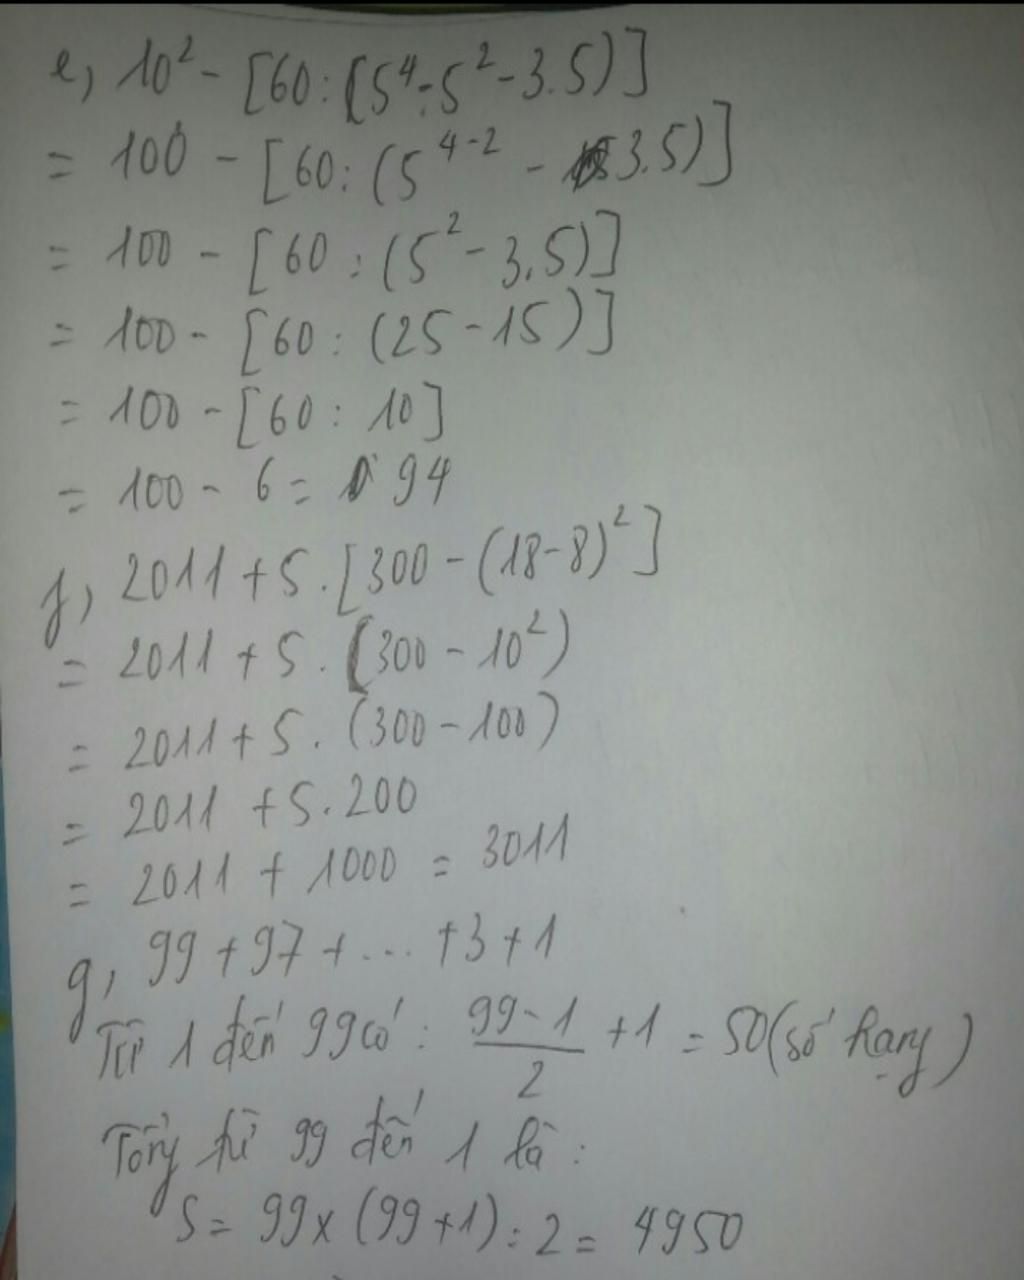 e, 10² - [60 : (5⁴ : 5² - 3.5)]
= 100 - [60 : (5⁴⁻² - 3.5)]
= 100 - [60 : (5² - 3.5)]
= 100 - [60 : (25 - 15)]
= 100 - [60 : 10]
= 100 - 6 = 94
f, 2011 + 5 . [300 - (18 - 8)²]
= 2011 + 5 . (300 - 10²)
= 2011 + 5 . (300 - 100)
= 2011 + 5 . 200
= 2011 + 1000 = 3011
g, 99 + 97 + ... + 3 + 1
Từ 1 đến 99 có : \frac{99 - 1}{2} + 1 = 50 (số hạng)
Tổng từ 99 đến 1 là :
S = 99 x (99 + 1) : 2 = 4950